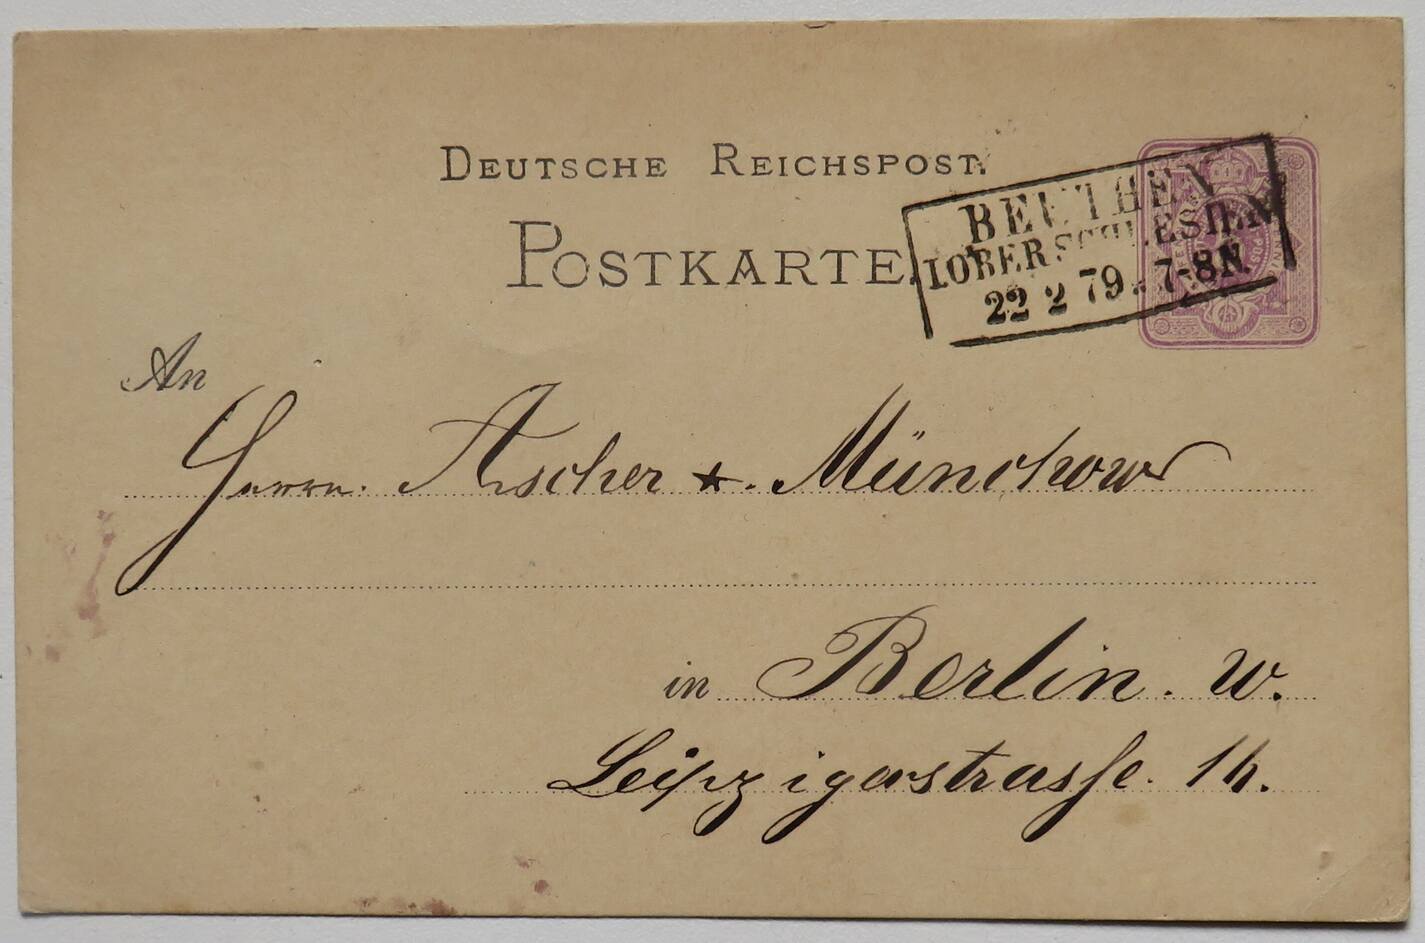 DEUTSCHE REICHSPOST.
POSTKARTE.
BEUTHEN
IOBERSCHLESIEN
22 2 79. 7-8N.
An
Herrn. Ascher & Münchow
in Berlin. W.
Leipzigerstrasse.